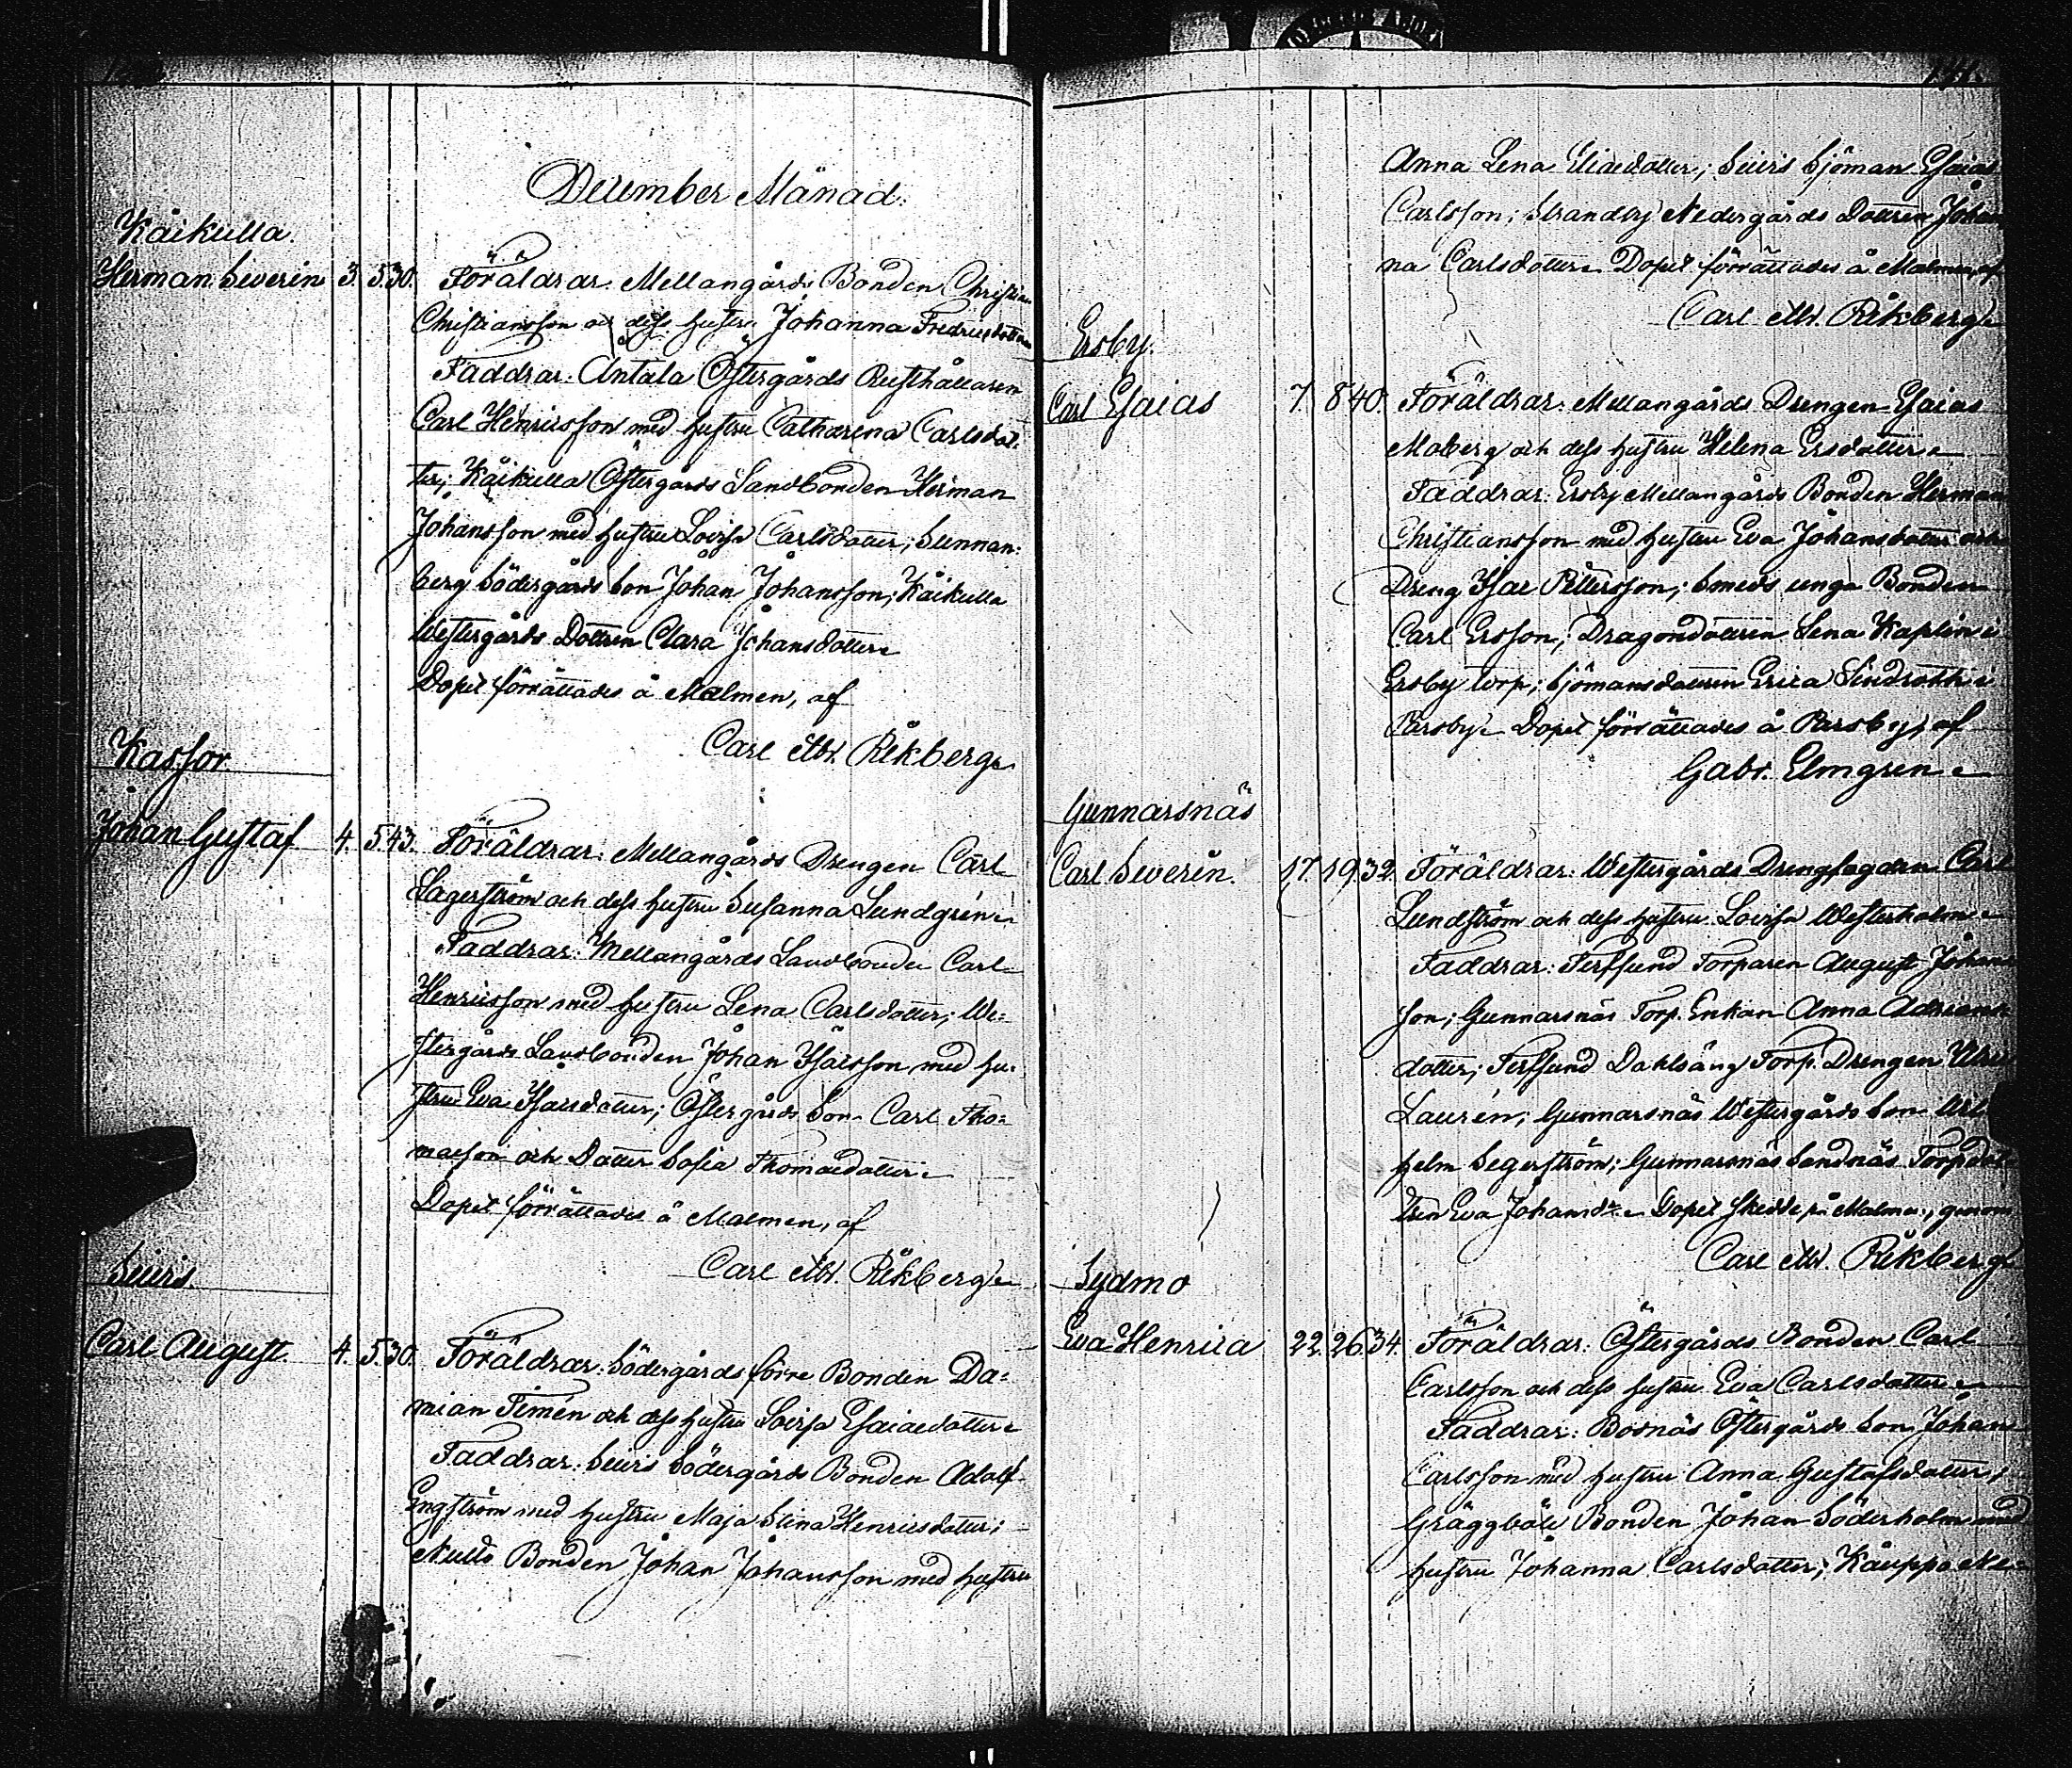 December Månad.
Kåikulla.
Herman Severin 3. 5. 30. Föräldrar: Mellangårds Bonden Christian
Christiansson och dess hustru Johanna Fredricsdotter
Faddrar: Antala Östergårds Rusthållaren
Carl Henricsson med hustru Catharina Carlsdot-
ter; Kåikulla Östergårds Landbonden Herman
Johansson med hustru Lovisa Carlsdotter; Sunnan-
berg Södergårds Son Johan Johansson; Kåikulla
Westergårds Dottren Clara Johansdotter
Dopet förrättades å Malmen, af
Carl Mw. Råkberg
Kassor.
Johan Gustaf 4. 5. 43. Föräldrar: Mellangårds Drengen Carl
Lagerström och dess hustru Susanna Lundgrén
Faddrar: Mellangårds Landbonden Carl
Henricsson med hustru Lena Carlsdotter; We-
stergårds Landbonden Johan Isacsson med hu-
stru Eva Isacsdotter; Östergårds Son Carl Tho-
masson och Dotter Sofia Thomaedotter
Dopet förrättades å Malmen, af
Carl Mw. Råkberg
Seivis
Carl August. 4. 5. 30. Föräldrar: Södergårds förre Bonden Da-
mian Timén och dess hustru Lovisa Esaiaedotter
Faddrar: Seivis Södergårds Bonden Adolf
Engström med hustru Maja Stina Henricsdotter;
Bonden Johan Johansson med hustru
Anna Lena Eliaedotter; Seivis Sjöman Esaias
Carlsson; Strandby Nedergårds Dottren Johan
na Carlsdotter Dopet förrättades å Malmen, af
Carl Mw. Råkberg
Ersby.
Carl Esaias 7. 8 40. Föräldrar: Mellangårds Drengen Esaias
Moberg och dess hustru Helena Ersdotter
Faddrar: Ersby Mellangårds Bonden Herman
Christiansson med hustru Eva Johansdotter och
Dreng Isac Pettersson; Smeds unga Bonden
Carl Ersson; Dragondottren Lena Kaplin i
Ersby torp; Sjömansdottren Erica Lindroth i
Parsby Dopet förrättades å Parsby, af
Gabr. Elmgren
Gunnarsnäs
Carl Severin. 17. 19. 32. Föräldrar: Westergårds Drengfogden Carl
Lundström och dess hustru Lovisa Westerholm
Faddrar: Terssund Torparen August Johans
son; Gunnarsnäs Torp. Enkan Anna Adrians
dotter; Terssund Torp. Drengen
Laurén; Gunnarsnäs Westergårds Son
helm Segerström; Gunnarsnäs Sandnäs Torpdot
tren Eva Johansdr Dopet skedde på Malmen, genom
Carl Mw. Råkberg
Sydmo
Eva Henrica 22. 26. 34. Föräldrar: Östergårds Bonden Carl
Carlsson och dess hustru Eva Carlsdotter
Faddrar: Bosnäs Östergårds Son Johan
Carlsson med hustru Anna Gustafsdotter;
Gräggböle Bonden Johan Söderholm med
hustru Johanna Carlsdotter; Kauppo Ne-